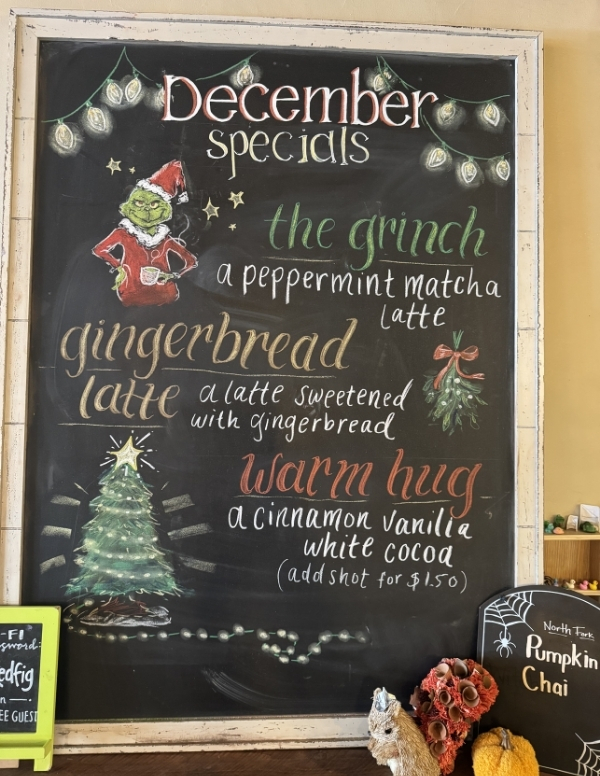 December
specials
the grinch
a peppermint matcha
latte
gingerbread
latte a latte sweetened
with gingerbread
warm hug
a cinnamon vanilla
white cocoa
(add shot for $1.50)
-FI
edfig
EE GUEST
North Fork
Pumpkin
Chai